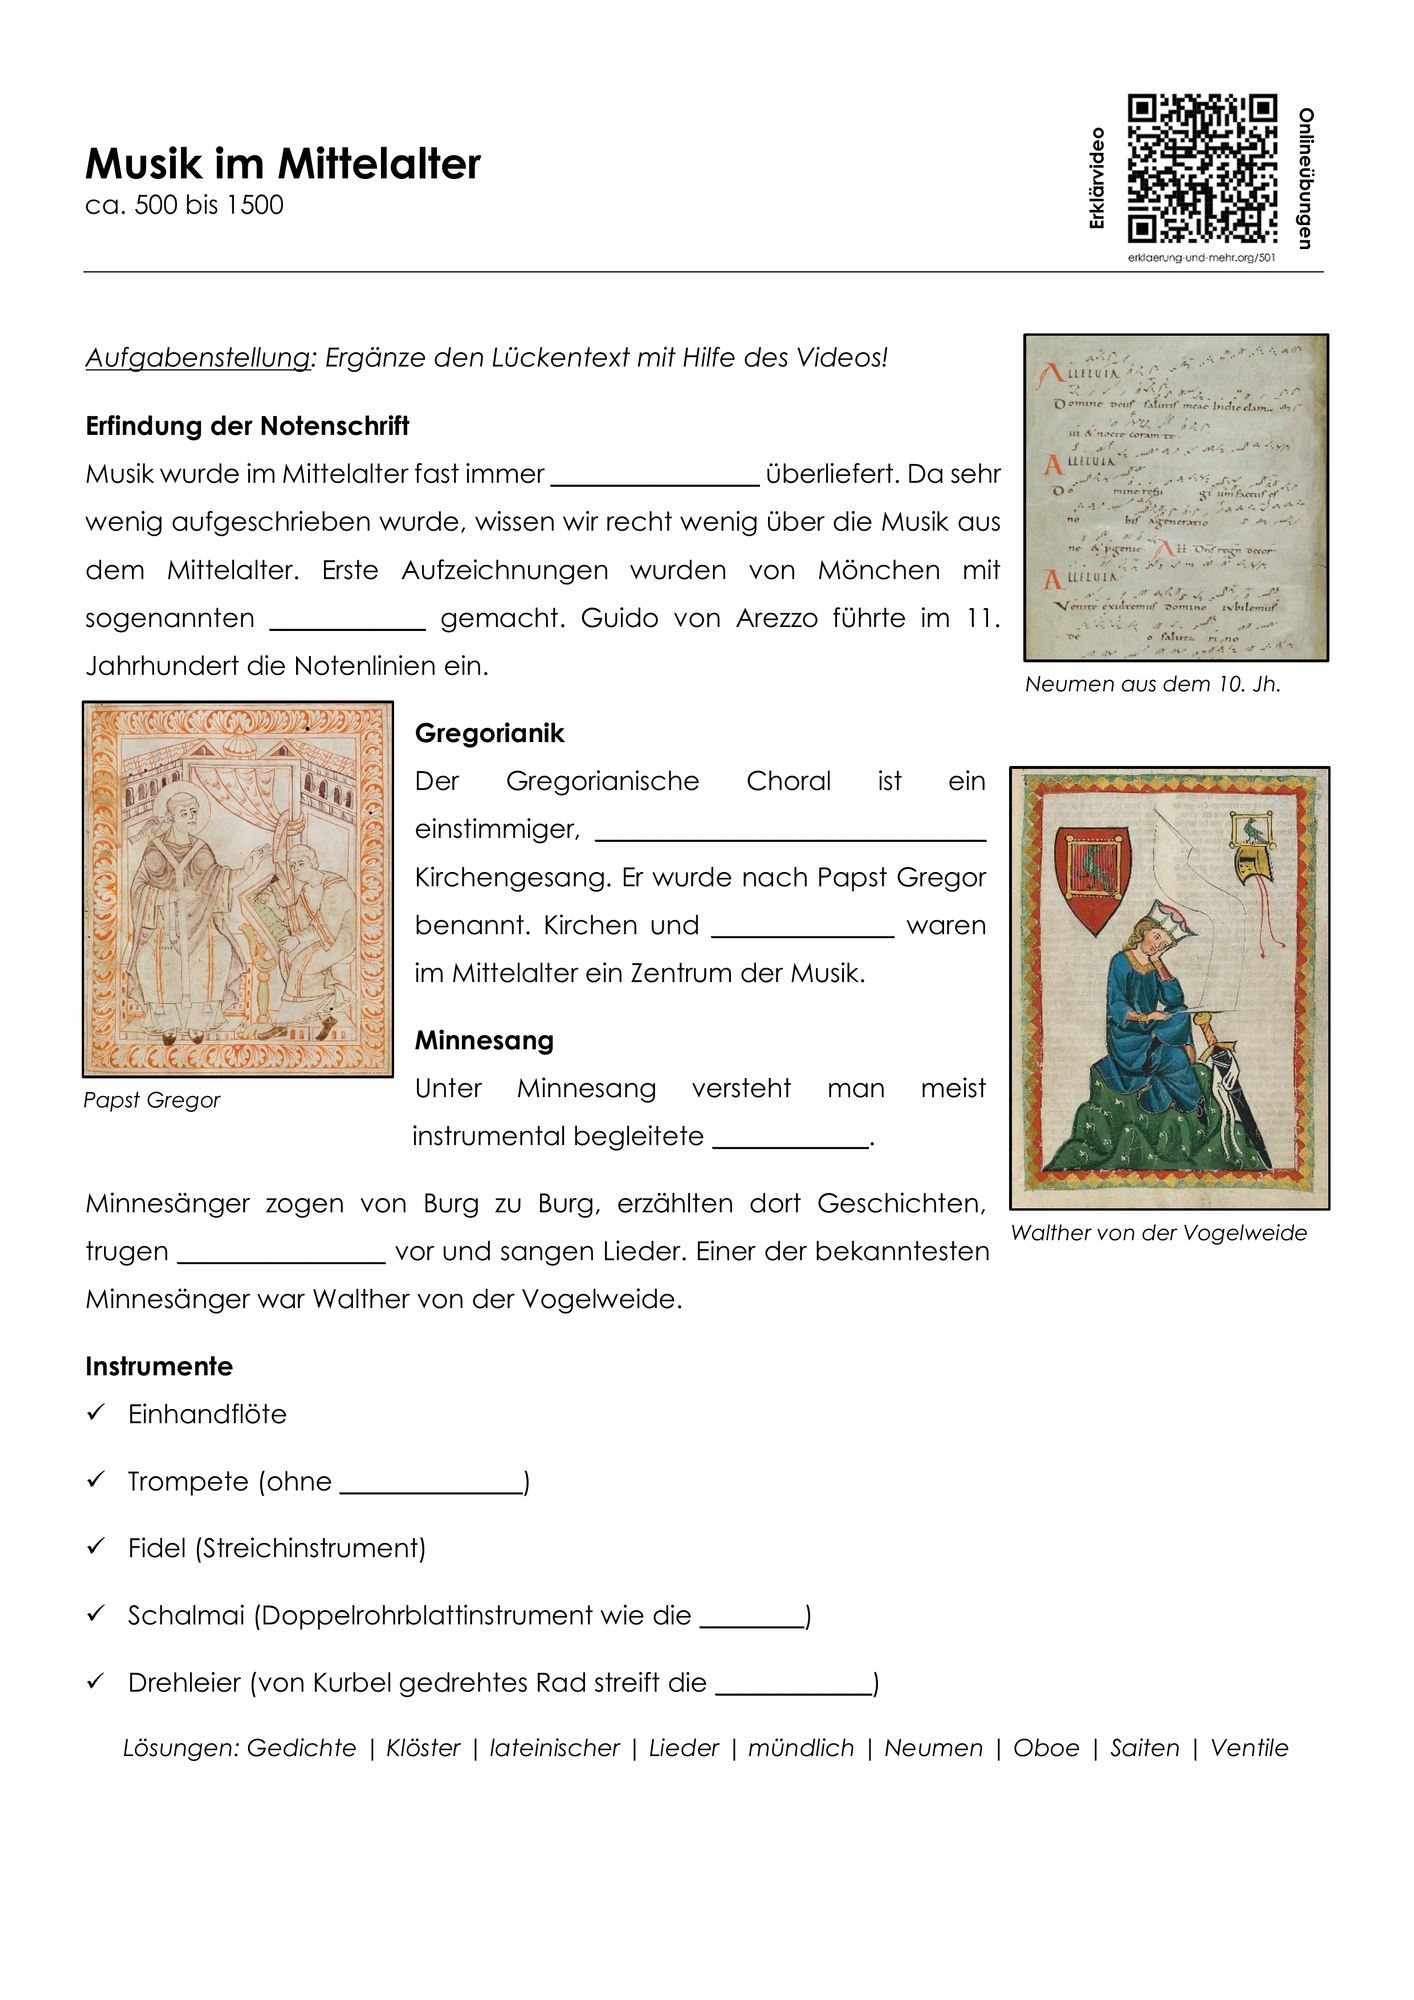 Musik im Mittelalter
ca. 500 bis 1500
Erklärvideo
Onlineübungen
erklaerung-und-mehr.org/501
Aufgabenstellung: Ergänze den Lückentext mit Hilfe des Videos!
Erfindung der Notenschrift
Musik wurde im Mittelalter fast immer ________________ überliefert. Da sehr
wenig aufgeschrieben wurde, wissen wir recht wenig über die Musik aus
dem Mittelalter. Erste Aufzeichnungen wurden von Mönchen mit
sogenannten ____________ gemacht. Guido von Arezzo führte im 11.
Jahrhundert die Notenlinien ein.
Neumen aus dem 10. Jh.
Gregorianik
Der Gregorianische Choral ist ein
einstimmiger, ______________________________
Kirchengesang. Er wurde nach Papst Gregor
benannt. Kirchen und ______________ waren
im Mittelalter ein Zentrum der Musik.
Papst Gregor
Minnesang
Unter Minnesang versteht man meist
instrumental begleitete ____________.
Minnesänger zogen von Burg zu Burg, erzählten dort Geschichten,
trugen ________________ vor und sangen Lieder. Einer der bekanntesten
Minnesänger war Walther von der Vogelweide.
Walther von der Vogelweide
Instrumente
✓ Einhandflöte
✓ Trompete (ohne ______________)
✓ Fidel (Streichinstrument)
✓ Schalmai (Doppelrohrblattinstrument wie die ________)
✓ Drehleier (von Kurbel gedrehtes Rad streift die ____________)
Lösungen: Gedichte | Klöster | lateinischer | Lieder | mündlich | Neumen | Oboe | Saiten | Ventile